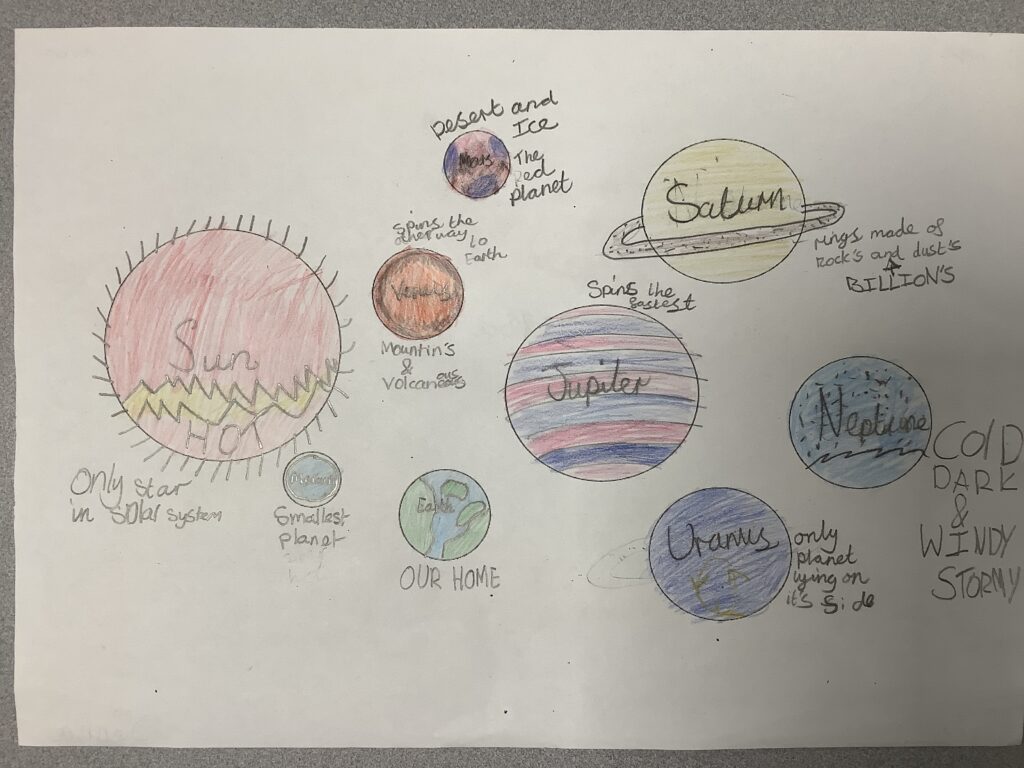 Sun
HOT
Only star
in solar system
Smallest
planet
Spins the
other way to
Earth
Venus
Mountin's
&
Volcaneous
Earth
OUR HOME
Desert and
Ice
Mars
The
Red
planet
Spins the
fastest
Jupiter
Saturn
rings made of
Rock's and dust's
BILLION'S
Neptune
COLD
DARK
&
WINDY
STORMY
Uranus
only
planet
lying on
it's Side